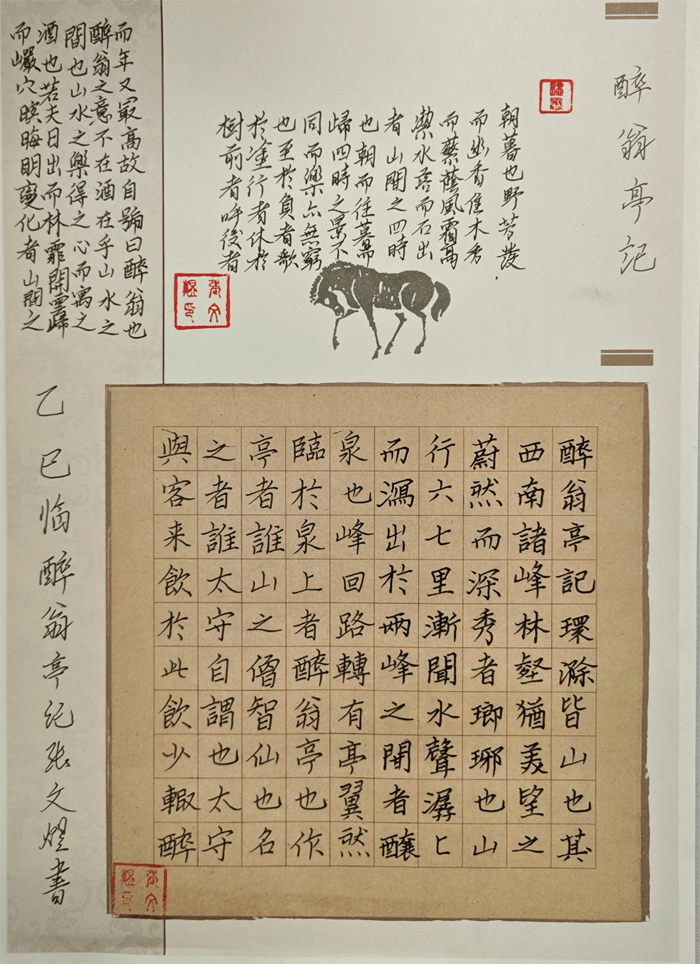 醉翁亭記
醉翁亭記環滁皆山也其
西南諸峰林壑猶美望之
蔚然而深秀者瑯琊也山
行六七里漸聞水聲潺〻
而瀉出於兩峰之間者釀
泉也峰回路轉有亭翼然
臨於泉上者醉翁亭也作
亭者誰山之僧智仙也名
之者誰太守自謂也太守
與客来飲於此飲少輒醉
而年又最高故自號曰醉翁也
醉翁之意不在酒在乎山水之
間也山水之樂得之心而寓之
酒也若夫日出而林霏開雲歸
而巖穴暝晦明變化者山間之
朝暮也野芳發
而幽香佳木秀
而繁蔭風霜高
潔水落而石出
者山間之四時
也朝而往暮而
歸四時之景不
同而樂亦無窮
也至於負者歌
於塗行者休於
樹前者呼後者
乙巳临醉翁亭记张文煜書